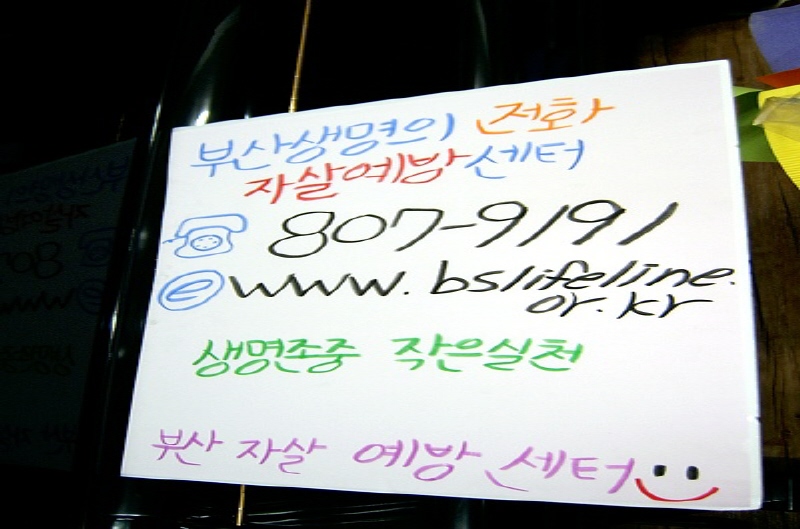 부산생명의 전화
자살예방센터
807-9191
e www.bslifeline.
or.kr
생명존중 작은실천
부산 자살 예방 센터